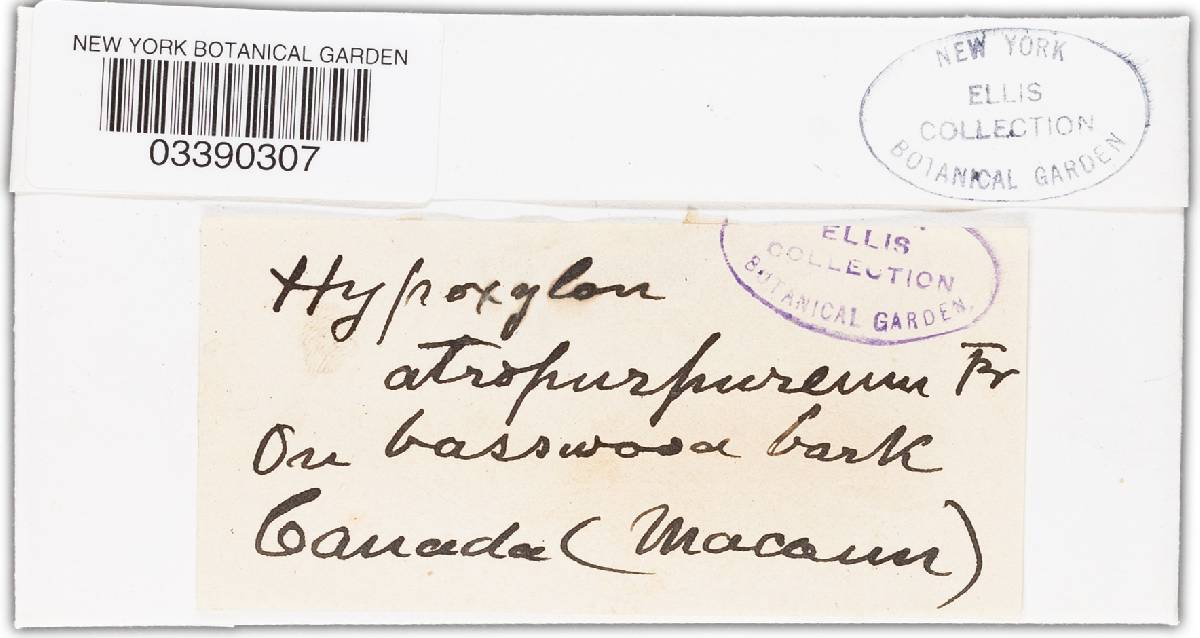 NEW YORK BOTANICAL GARDEN
03390307
NEW YORK
ELLIS
COLLECTION
BOTANICAL GARDEN
ELLIS
COLLECTION
BOTANICAL GARDEN.
Hypoxylon
atropurpureum Fr
On basswood bark
Canada (Macoun)